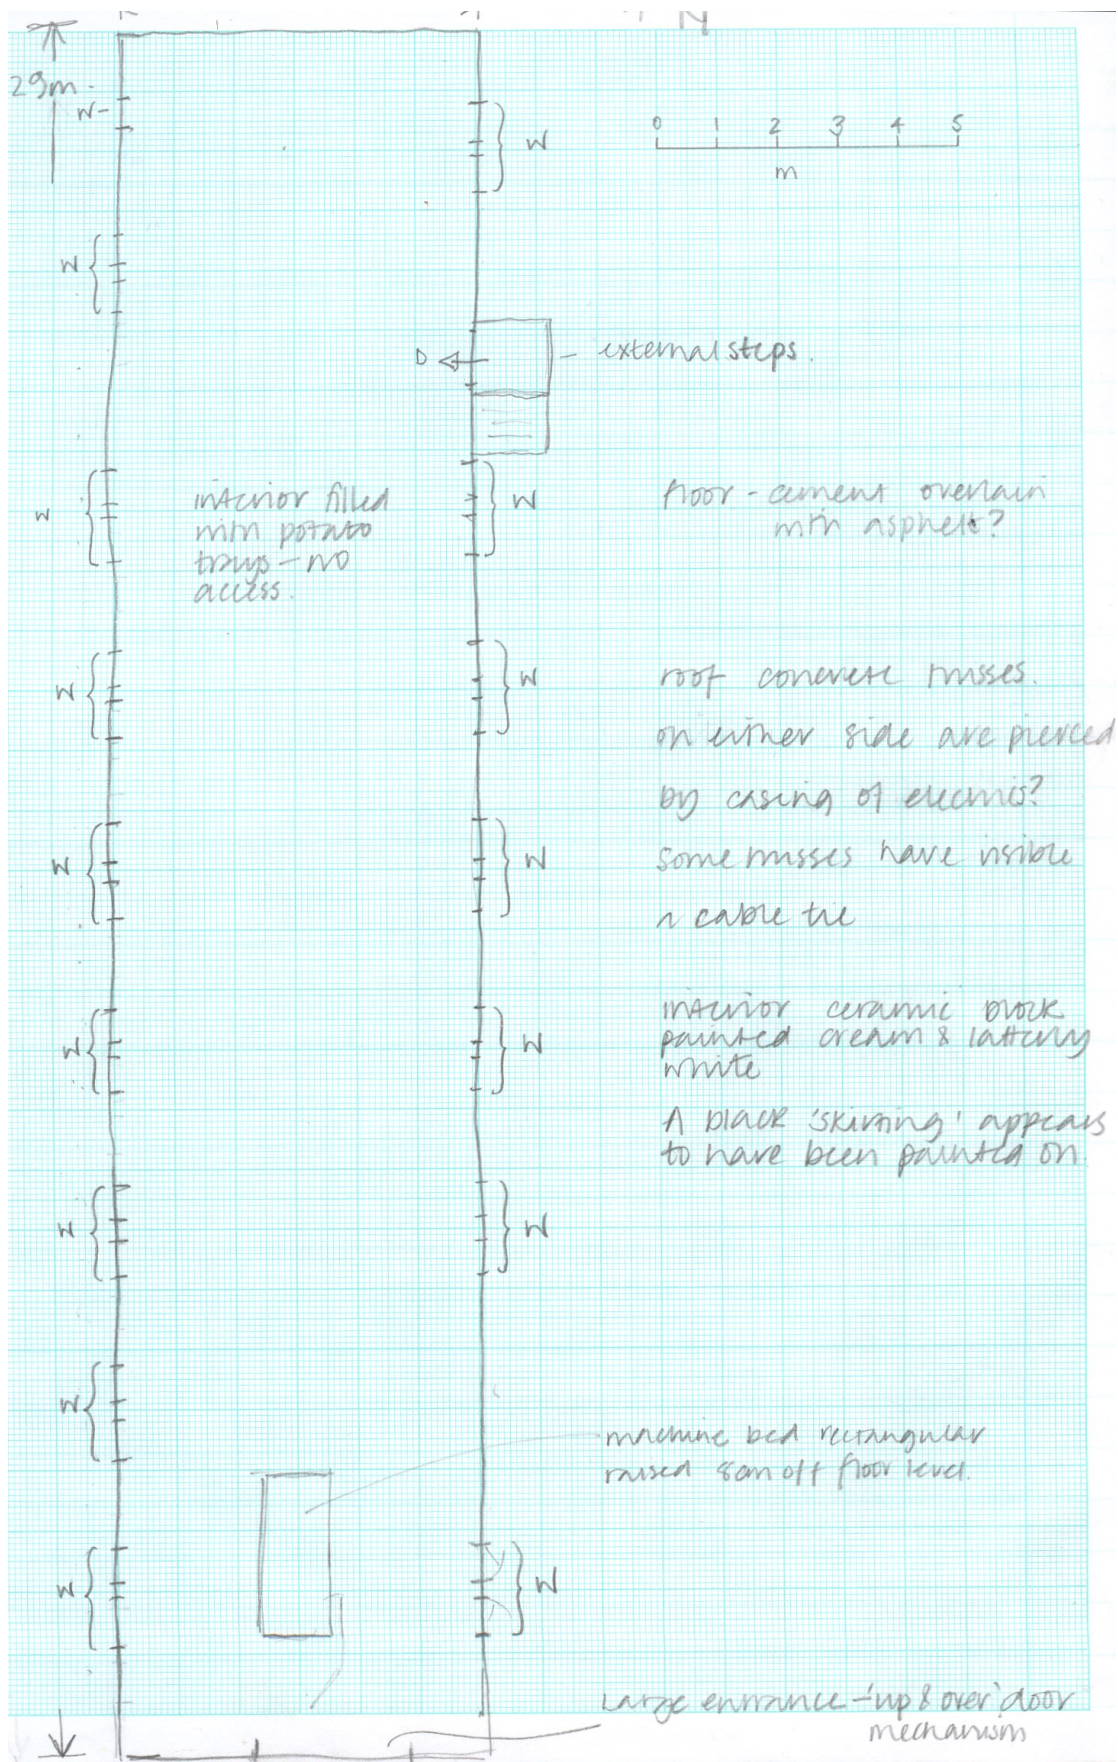 N
29m
W
W
0 1 2 3 4 5
m
W
D
external steps.
W
W
interior filled
with potato
trays - no
access.
floor - cement overlain
with asphelt?
W
W
roof concrete trusses.
on either side are pierced
by casing of electrics?
some trusses have visible
cable tie
W
W
W
W
interior ceramic block
painted cream & latterly
white
A black 'skirting' appears
to have been painted on
W
W
W
machine bed rectangular
raised 8cm off floor level.
W
W
Large entrance - 'up & over' door
mechanism